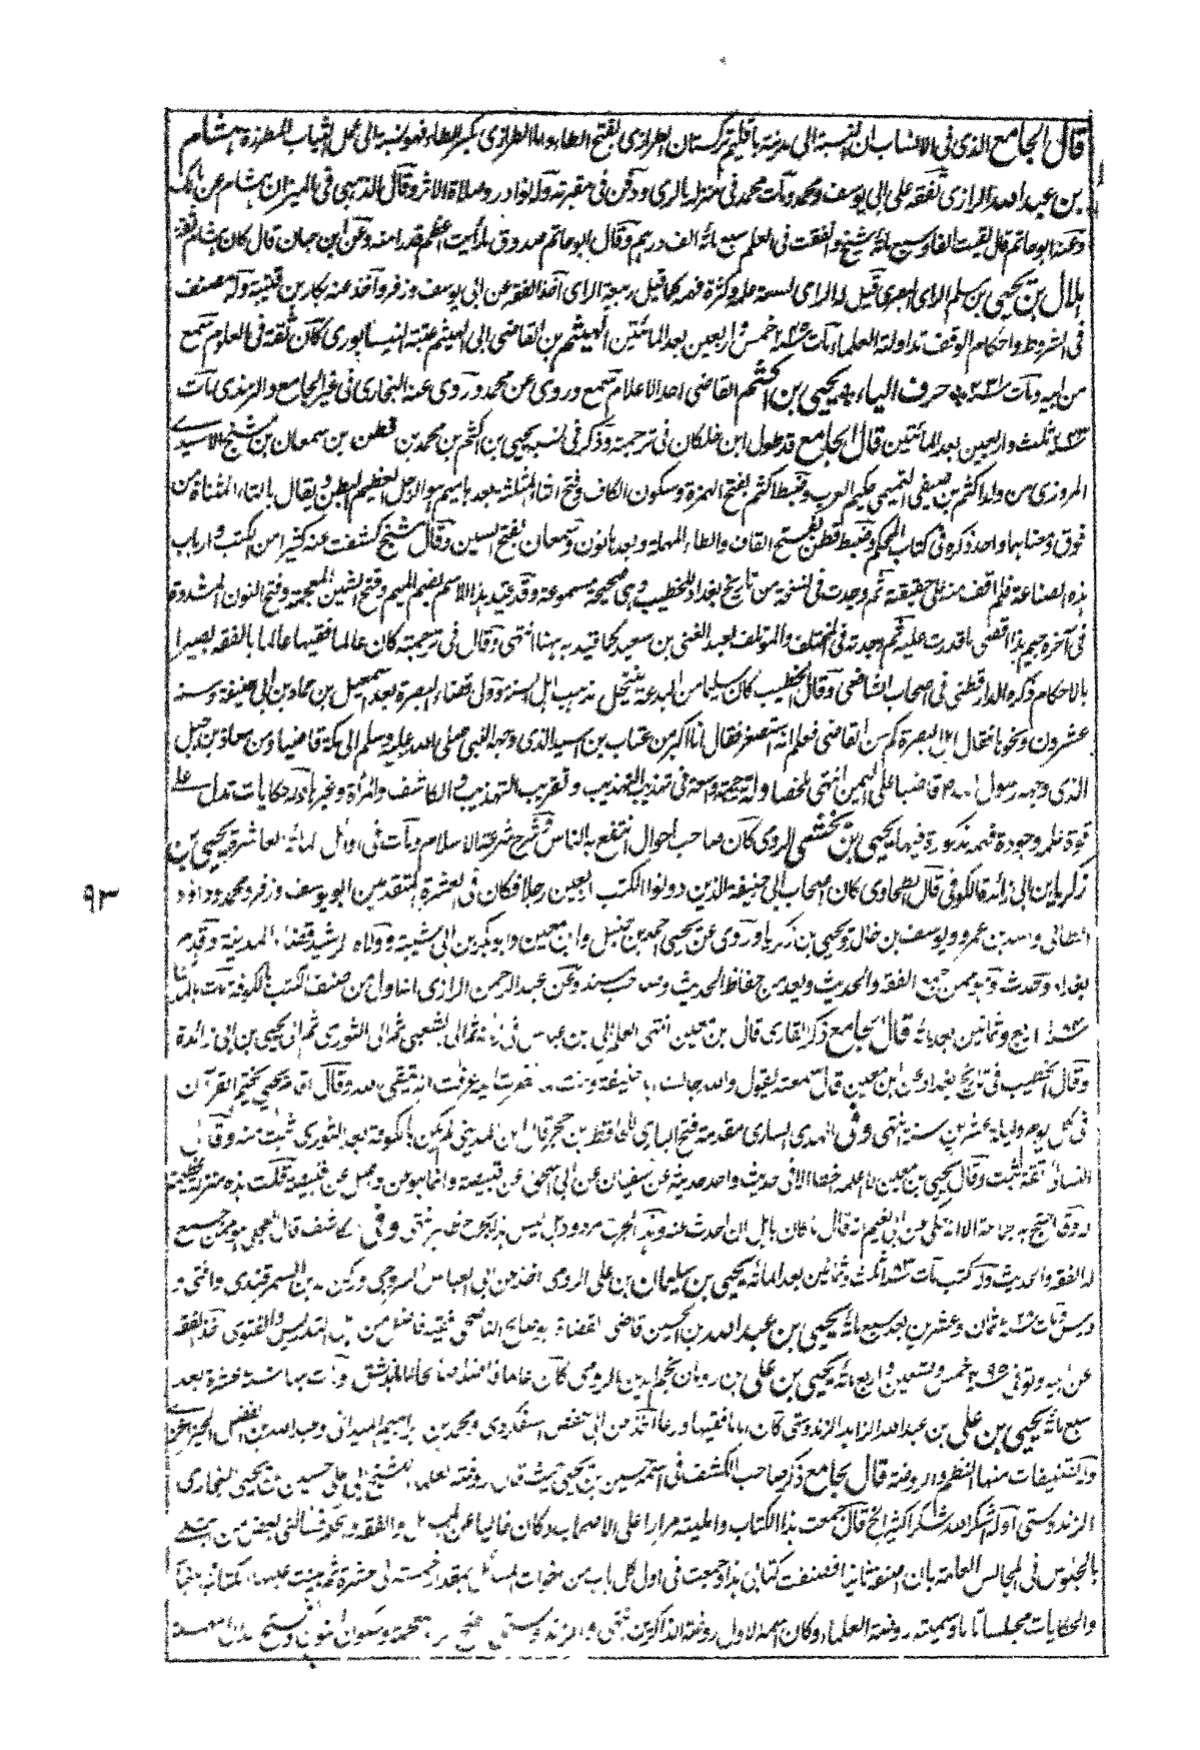 قال الجامع الذي في الانساب ان النسبة الى مدينة باقليم تركستان الطرازي بفتح الطاء واما الطرازي بكسر الطاء فهو نسبة الى عمل الثياب المطرزة هشام
بن عبد الله الرازي تفقه على ابي يوسف ومحمد ومات محمد في منزله بالري ودفن في مقبرته وله نوادر وصلاة الاثر وقال الذهبي في الميزان هشام عن مالك
وعنه ابو حاتم قال لقيت الفا وسبع مائة شيخ وانفقت في العلم سبع مائة الف درهم وقال ابو حاتم صدوق ما رأيت اعظم قدرا منه وعن ابن حبان قال كان هشام ثقة
هلال بن يحيى بن مسلم الراي البصري قيل له الراي لسعة علمه وكثرة فهمه كما قيل ربيعة الراي اخذ الفقه عن ابي يوسف وزفر واخذ عنه بكار بن قتيبة وله مصنف
في الشروط واحكام الوقف تداولته العلماء مات ٢٤٥ خمس واربعين بعد المائتين الهيثم بن القاضي ابي الهيثم عتبة النيسابوري كان ثقة في العلوم سمع
من ابيه ومات حرف الياء يحيى بن اكثم القاضي احد الاعلام سمع وروى عن محمد وروى عنه البخاري في غير الجامع والترمذي مات
٢٤٣ ثلث واربعين بعد المائتين قال الجامع قد طول ابن خلكان في ترجمته وذكر في نسبه يحيى بن اكثم بن محمد بن قطن بن سمعان بن مشنج الاسيدي
المروزي من ولد اكثم بن صيفي التميمي حكيم العرب وضبط اكثم بفتح الهمزة وسكون الكاف وفتح الثاء المثلثة بعدها ميم هو الرجل العظيم البطن ويقال بالتاء المثناة من
فوق ومعناهما واحد ذكره في كتاب المحكم وضبط قطن بفتح القاف والطاء المهملة وبعدها نون وسمعان بفتح السين وقال مشنج كشفت عنه كثيرا من الكتب وارباب
هذه الصناعة فلم اقف منه على حقيقة ثم وجدت في نسخة من تاريخ بغداد للخطيب وهي صحيحة مسموعة وقد قيد هذا الاسم بضم الميم وفتح الشين المعجمة وفتح النون المشددة
في آخره جيم هذا اقصى ما قدرت عليه ثم وجدته في المختلف والمؤتلف لعبد الغني بن سعيد كما قيد به ههنا انتهى وقال في ترجمته كان عالما فقيها عالما بالفقه بصيرا
بالاحكام ذكره الدارقطني في اصحاب الشافعي وقال الخطيب كان سليما من البدعة ينتحل مذهب اهل السنة وولي قضاء البصرة بعد اسمعيل بن حماد بن ابي حنيفة وسنه
عشرون ونحوها فقال اهل البصرة كم سن القاضي فعلم انه استصغر فقال انا اكبر من عتاب بن اسيد الذي وجهه النبي صلى الله عليه وسلم الى مكة قاضيا ومن معاذ بن جبل
الذي وجهه رسول الله قاضيا على اليمن انتهى ملخصا وله ترجمة واسعة في تهذيب التهذيب وتقريب التهذيب والكاشف والمرآة وغيرها وله حكايات تدل على
قوة علمه وجودة فهمه مذكورة فيها يحيى بن بخشى الرومي كان صاحب احوال انتفع به الناس شرح شرعة الاسلام ومات في اوائل المائة العاشرة يحيى بن
زكريا بن ابي زائدة الكوفي قال الطحاوي كان اصحاب ابي حنيفة الذين دونوا الكتب اربعين رجلا فكان في العشرة المتقدمين ابو يوسف وزفر ومحمد وداؤد
الطائي واسد بن عمرو ويوسف بن خالد ويحيى بن زكريا وروى عن يحيى احمد بن حنبل وابن معين وابو بكر بن ابي شيبة وولاه الرشيد قضاء المدينة وقدم
بغداد وحدث وهو ممن جمع الفقه والحديث ويعد من حفاظ الحديث وصاحب سند وعن عبد الرحمن الرازي انه اول من صنف الكتب بالكوفة مات
اربع وثمانين بعد مائة قال الجامع ذكر القاري قال بن معين انتهى العلم الى بن عباس في زمانه ثم الى الشعبي ثم الى الثوري ثم الى يحيى بن ابي زائدة
وقال الخطيب في تاريخ بغداد عن ابن معين قال سمعته يقول والله جالست ابا حنيفة عرفت انه يتقي الله وقال ان يحيى يختم القرآن
في كل يوم وليلة عشرين سنة انتهى وفي الهدى الساري مقدمة فتح الباري للحافظ بن حجر قال بن المديني لم يكن بالكوفة بعد الثوري اثبت منه وقال
النسائي ثقة ثبت وقال يحيى بن معين ما اعلمه اخطأ الا في حديث واحد حدثه عن سفيان عن ابي اسحق عن قبيصة وانما هو عن واصل عن قبيصة قلت هذه منزلة عظيمة
انتهى وفي الكاشف قال العجلي هو ممن جمع
له الفقه والحديث وله كتب مات ثلث وثمانين بعد المائة يحيى بن سليمان بن علي الرومي اخذ عن ابي العباس السروجي
ودرس ومات ٧٢٨ ثمان وعشرين بعد سبع مائة يحيى بن عبد الله بن الحسين قاضي القضاة الناصحي التدريس والفتوى اخذ الفقه
عن ابيه وتوفي ٤٩٥ خمس وتسعين واربع مائة يحيى بن علي بن رومان نجم الدين الرومي كان عالما فاضلا اماما بدمشق ومات بها عشرة بعد
سبع مائة يحيى بن علي بن عبد الله الزاهد الزندوستي كان اماما فقيها ورعا اخذ عن ابي حفص السفكردري ومحمد بن ابراهيم الميداني وعبد الله بن الفضل
وله تصنيفات منها النظم والروضة قال الجامع ذكر صاحب الكشف في اسمه حسين بن يحيى حيث قال روضة العلماء للشيخ ابي علي حسين بن يحيى البخاري
الزندوستي اوله الشكر لله شكرا كثيرا الخ قال جمعت هذا الكتاب وامليته مرارا على الاصحاب وكان خاليا عن المسائل والفقه
بالجلوس في المجالس العامة بان اصنفه ثانيا فصنفت كتابي هذا وجمعت في اول كل باب من
والحكايات مجلسا تاما وسميته روضة العلماء وكان اسمه الاول روضة الذاكرين انتهى والزندوستي
٩٣